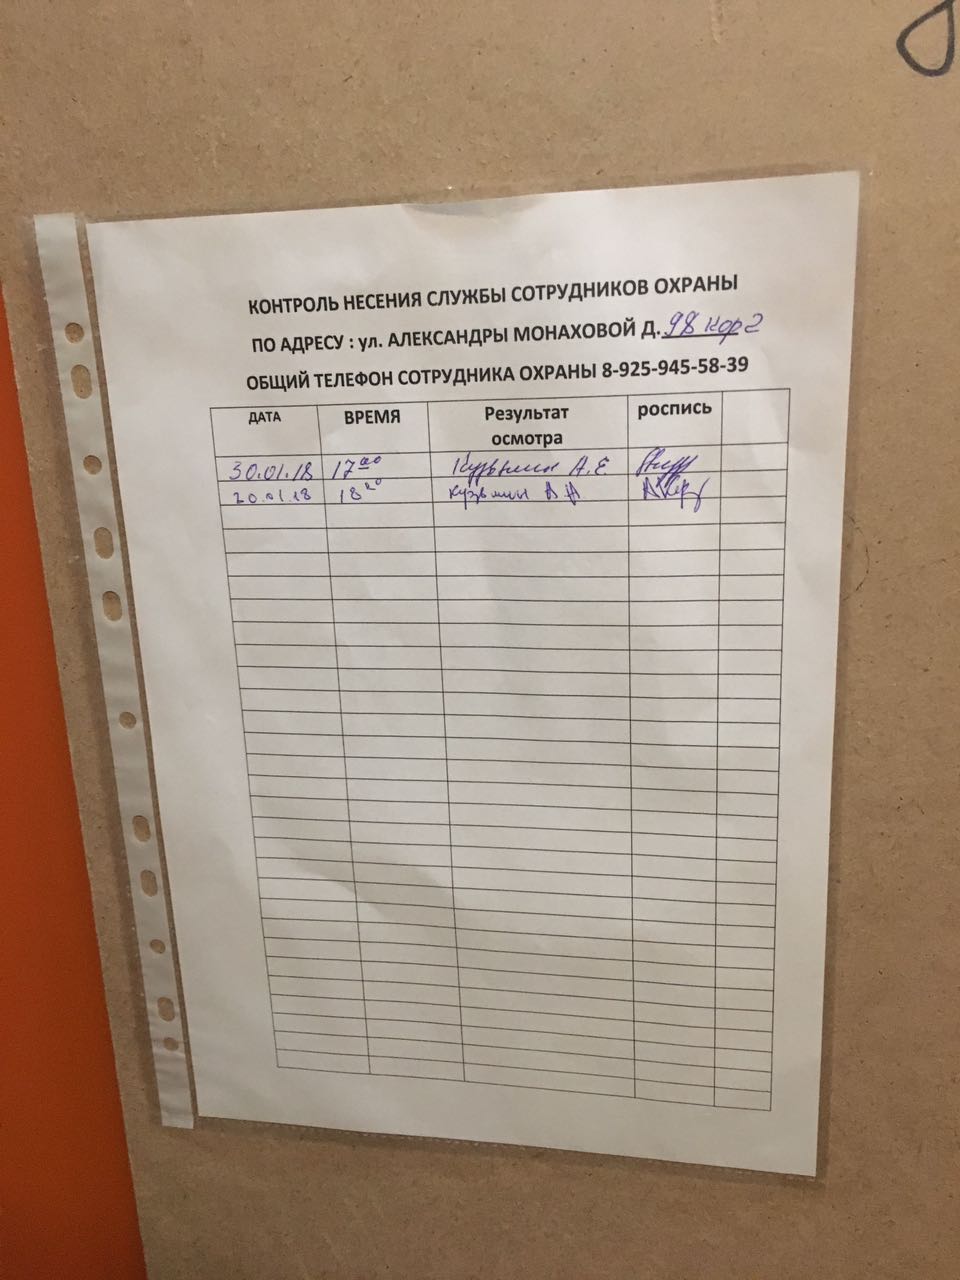 КОНТРОЛЬ НЕСЕНИЯ СЛУЖБЫ СОТРУДНИКОВ ОХРАНЫ
ПО АДРЕСУ : ул. АЛЕКСАНДРЫ МОНАХОВОЙ Д. 98 кор 2
ОБЩИЙ ТЕЛЕФОН СОТРУДНИКА ОХРАНЫ 8-925-945-58-39
ДАТА ВРЕМЯ Результат осмотра роспись
30.01.18 17 00 Кузьмин А.Е
20.01.18 18 20 Кузьмин